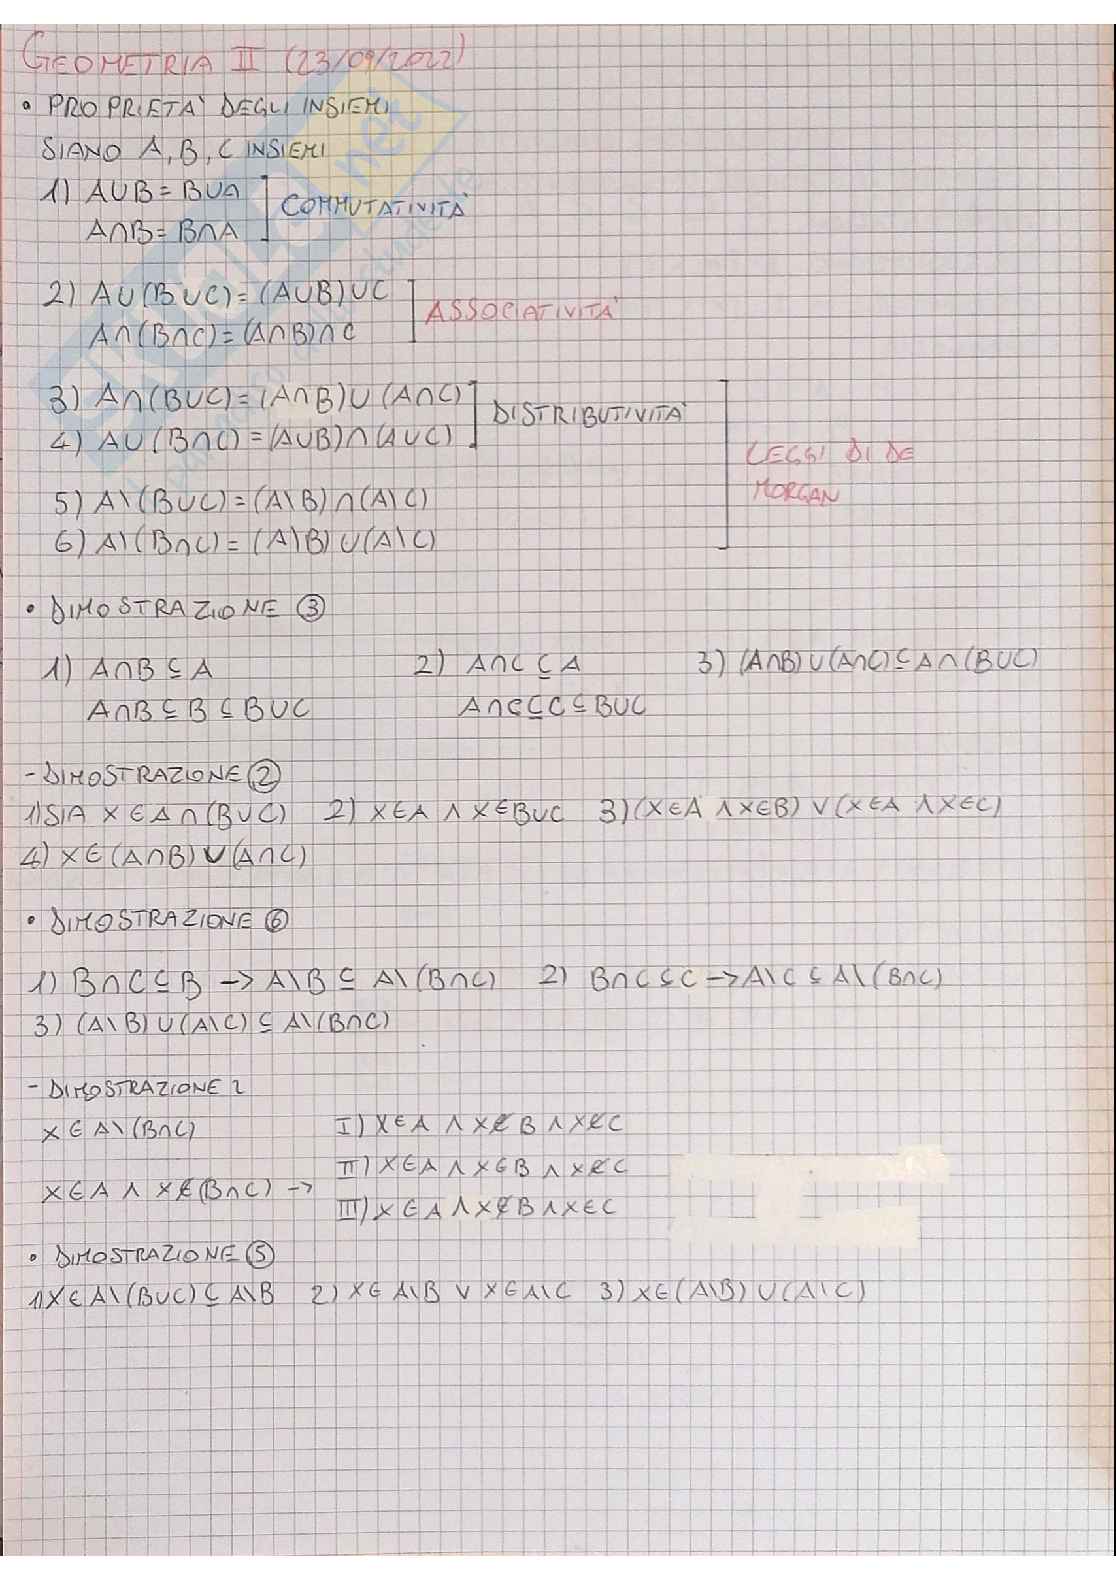 GEOMETRIA II (23/09/2022)
• PROPRIETA' DEGLI INSIEMI
SIANO A, B, C INSIEMI
1) A∪B = B∪A
A∩B = B∩A
COMMUTATIVITÀ
2) A∪(B∪C) = (A∪B)∪C
A∩(B∩C) = (A∩B)∩C
ASSOCIATIVITA'
3) A∩(B∪C) = (A∩B)∪(A∩C)
4) A∪(B∩C) = (A∪B)∩(A∪C)
DISTRIBUTIVITA'
5) A\(B∪C) = (A\B)∩(A\C)
6) A\(B∩C) = (A\B)∪(A\C)
LEGGI DI DE
MORGAN
• DIMOSTRAZIONE ③
1) A∩B ⊆ A 2) A∩C ⊆ A 3) (A∩B)∪(A∩C) ⊆ A∩(B∪C)
A∩B ⊆ B ⊆ B∪C A∩C ⊆ C ⊆ B∪C
- DIMOSTRAZIONE ②
1) SIA X ∈ A∩(B∪C) 2) X∈A ∧ X∈B∪C 3) (X∈A ∧ X∈B) ∨ (X∈A ∧ X∈C)
4) X∈(A∩B)∪(A∩C)
• DIMOSTRAZIONE ⑥
1) B∩C ⊆ B → A\B ⊆ A\(B∩C) 2) B∩C ⊆ C → A\C ⊆ A\(B∩C)
3) (A\B)∪(A\C) ⊆ A\(B∩C)
- DIMOSTRAZIONE 2
X ∈ A\(B∩C)
I) X∈A ∧ X∉B ∧ X∉C
X∈A ∧ X∉(B∩C) →
II) X∈A ∧ X∈B ∧ X∉C
III) X∈A ∧ X∉B ∧ X∈C
• DIMOSTRAZIONE ⑤
1) X∈A\(B∪C) ⊆ A\B 2) X∈A\B ∨ X∈A\C 3) X∈(A\B)∪(A\C)